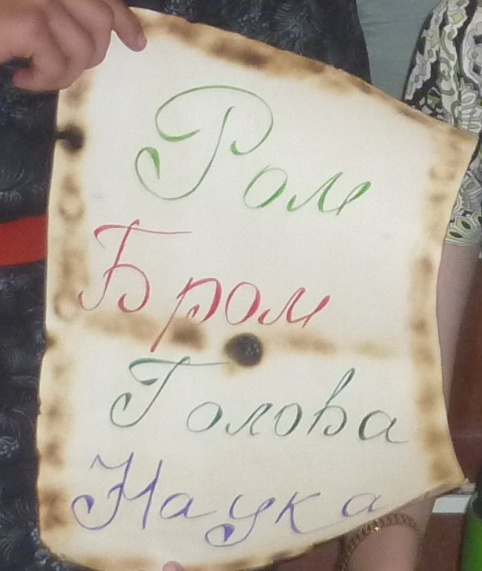 Ром
Бром
Голова
Наука